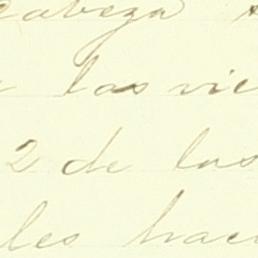 cabeza
las vie
2 de las
les hac